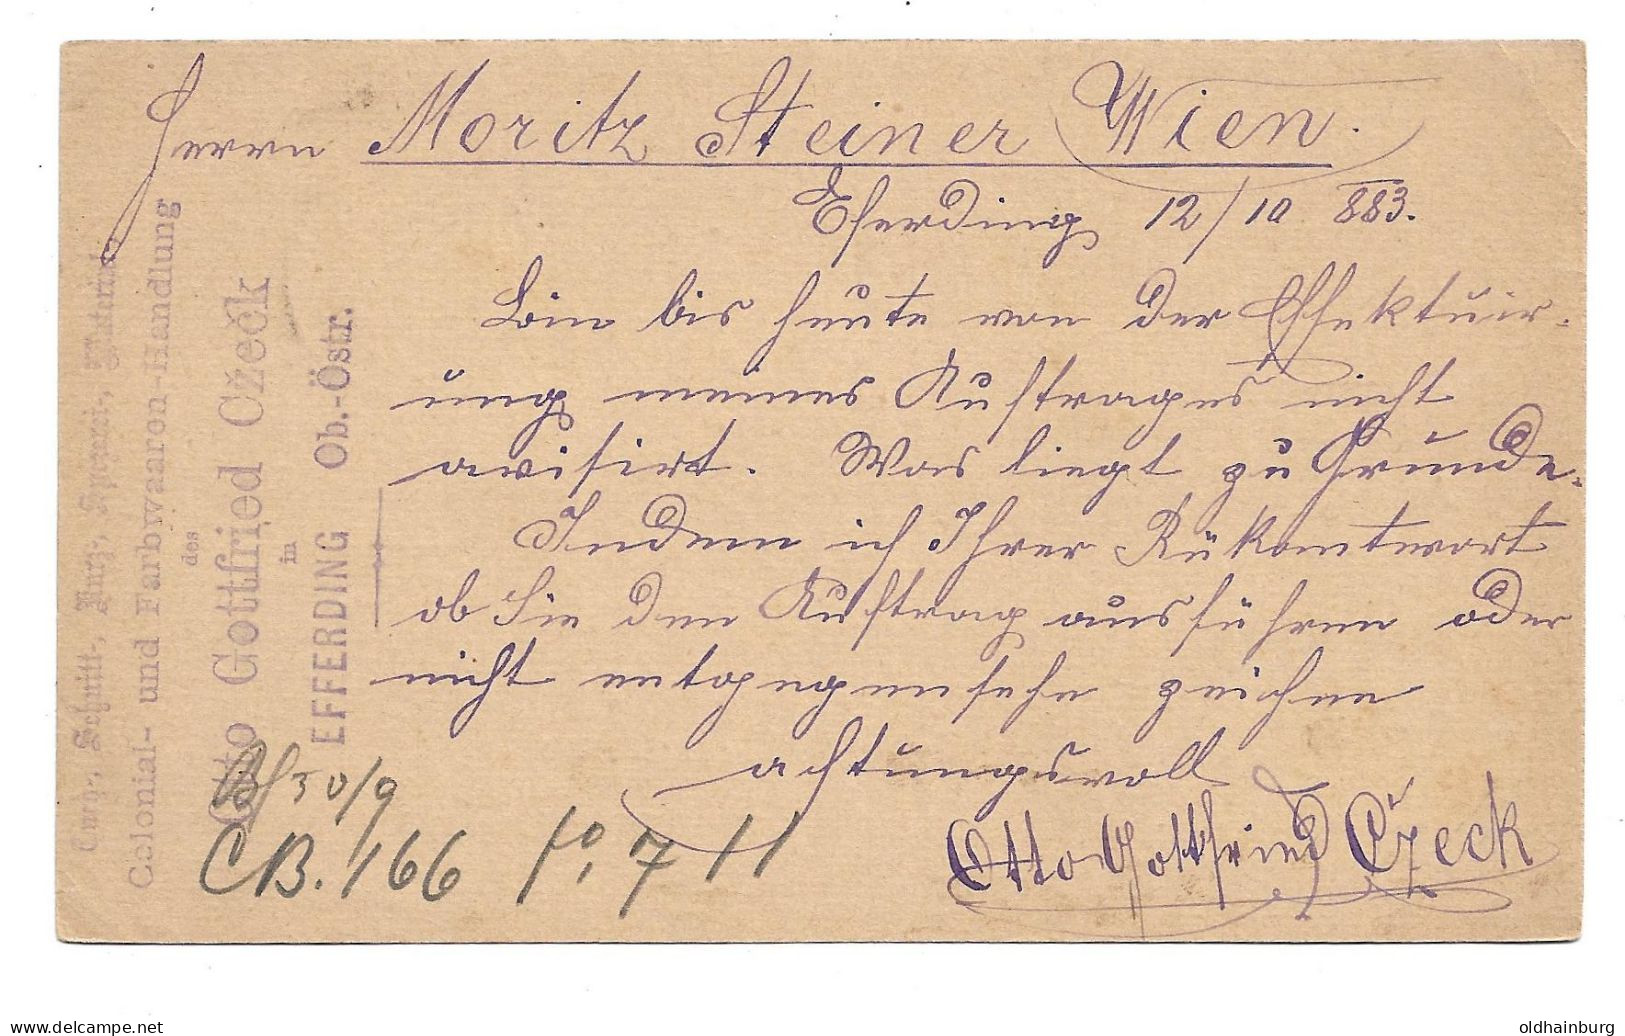 Herrn Moritz Steiner Wien.
Eferding 12/10 883.
Bin bis heute von der Effektuir-
ung meines Auftrages nicht
avisirt. Was liegt zu Grunde.
Indem ich Ihrer Rükantwort
ob Sie den Auftrag ausführen oder
nicht entgegensehe zeichne
achtungsvoll
Otto Gottfried Czeck
Schnitt-, Kurz-, Spezerei-, Material-,
Colonial- und Farbwaaren-Handlung
des
Otto Gottfried Cžečk
in
EFFERDING Ob.-Östr.
30/9
CB. 166 fo. 711
www.delcampe.net
oldhainburg